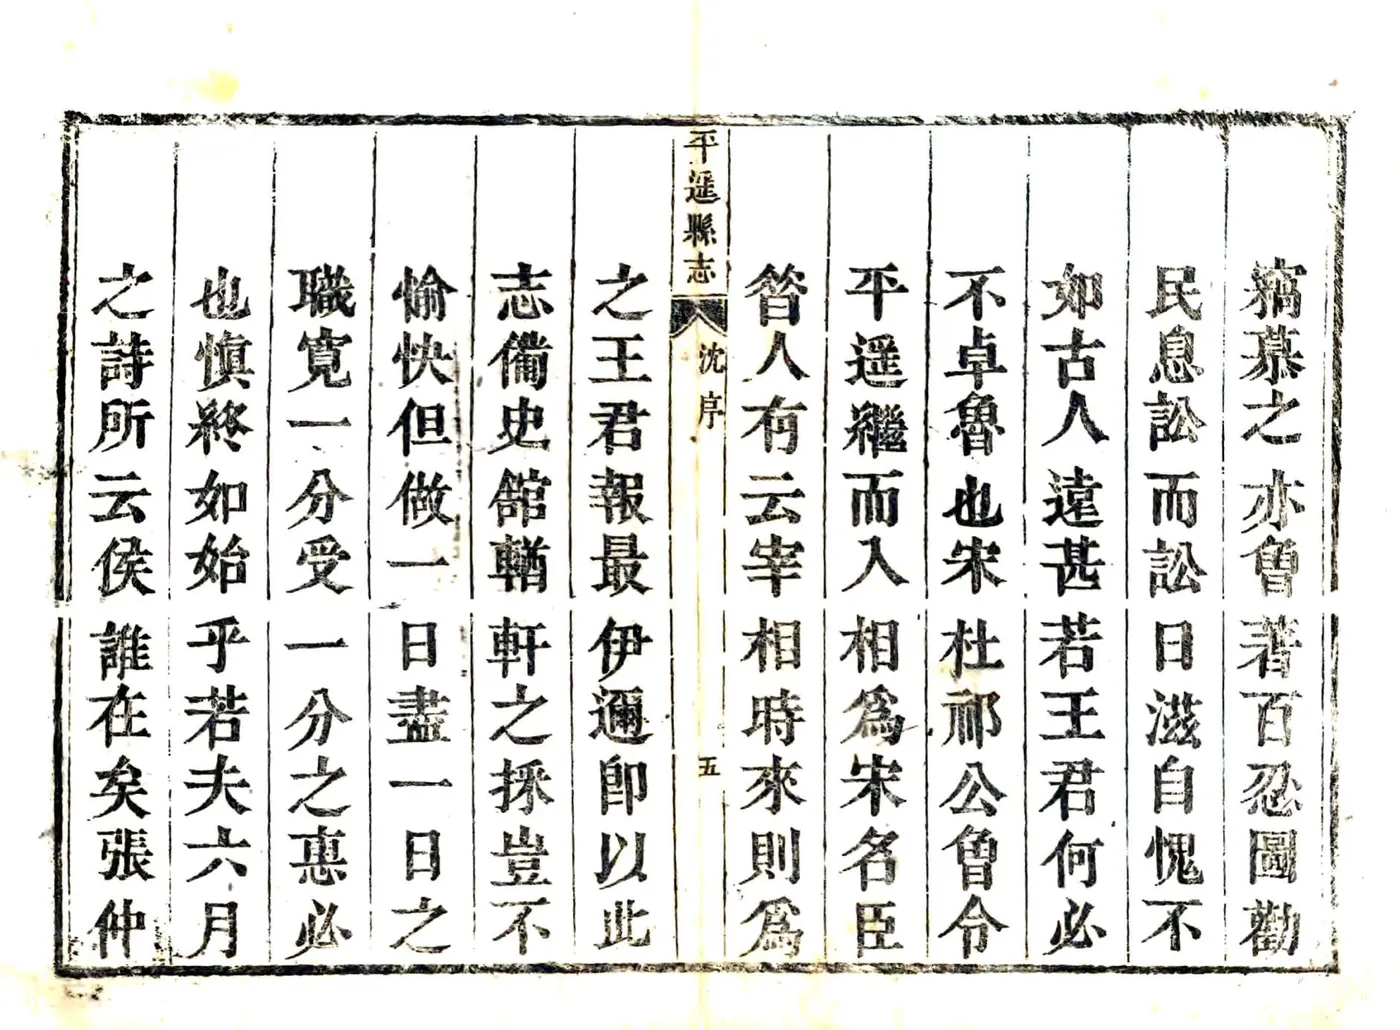 竊慕之亦曾著百忍圖勸
民息訟而訟日滋自愧不
如古人遠甚若王君何必
不卓魯也宋杜祁公曾令
平遥繼而入相爲宋名臣
昝人有云宰相時來則爲
平遥縣志 沈序 五
之王君報最伊邇即以此
志備史舘輶軒之採豈不
愉快但做一日盡一日之
職寛一分受一分之惠必
也愼終如始乎若夫六月
之詩所云侯誰在矣張仲